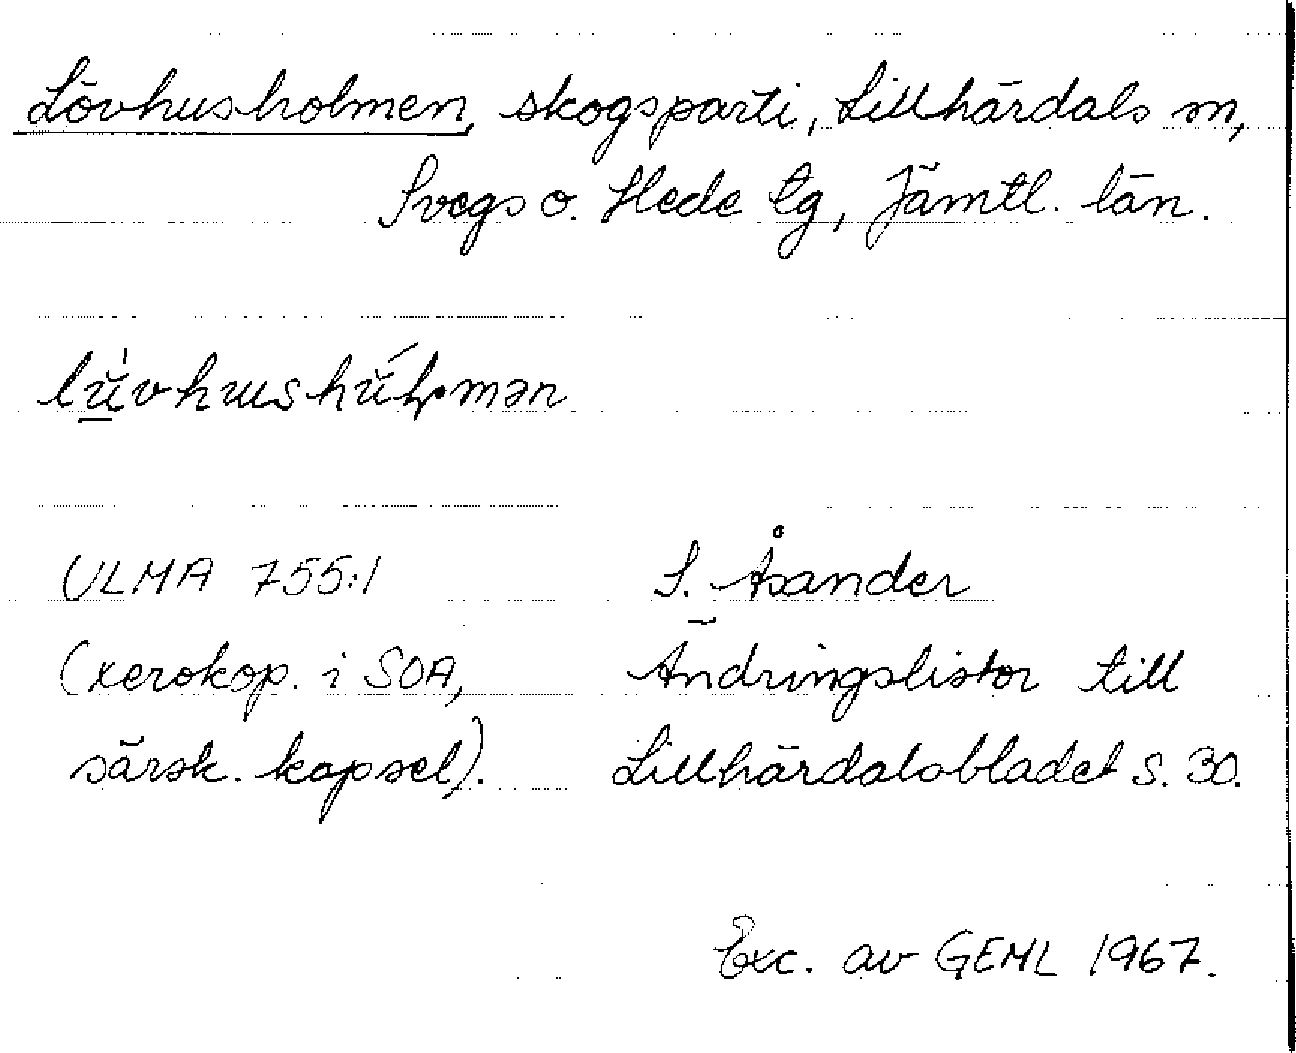 Lövhusholmen, skogsparti, Lillhärdals sn,
Svegs o. Hede tg, Jämtl. län.
ULMA 755:1
S. Åsander
(xerokop. i SOA,
Ändringslistor till
särsk. kapsel).
Lillhärdalsbladet s. 30.
Exc. av GEML 1967.